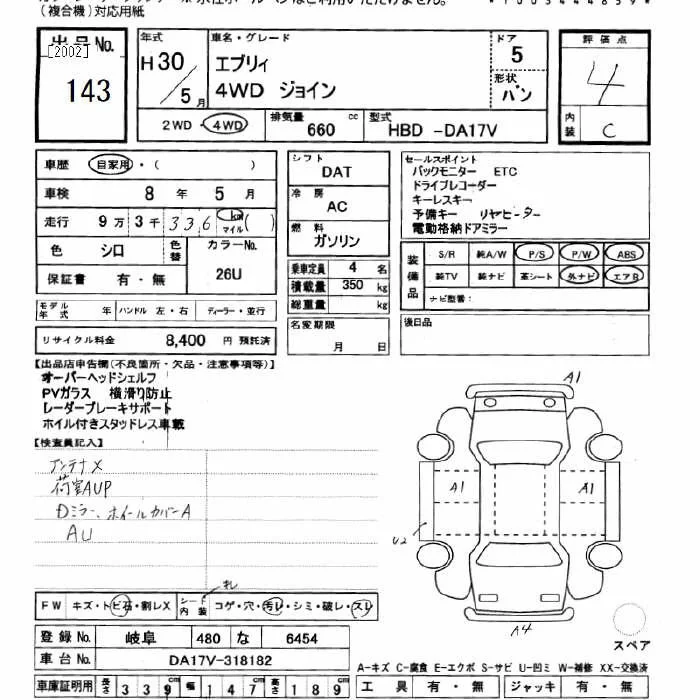 (複合機)対応用紙
出品No.
[2002]
143
年式 H30/5月
車名・グレード
エブリィ
4WD ジョイン
ドア 5
形状 バン
評価点 4
内装 C
2WD・4WD
排気量 660 cc
型式 HBD -DA17V
車歴 自家用・( )
車検 8年 5月
走行 9万 3千 336 km マイル ( )
色 シロ 色替 カラーNo. 26U
保証書 有・無
シフト DAT
冷房 AC
燃料 ガソリン
乗車定員 4 名
積載量 350 kg
総重量 kg
セールスポイント
バックモニター ETC
ドライブレコーダー
キーレスキー
予備キー リヤヒーター
電動格納ドアミラー
装備品 S/R 純A/W P/S P/W ABS
純TV 純ナビ 革シート 外ナビ エアB
ナビ型番:
モデル年式 年 ハンドル 左・右 ディーラー・並行
リサイクル料金 8,400 円 預託済
名変期限 月 日
後日品
【出品店申告欄(不良箇所・欠品・注意事項等)】
オーバーヘッドシェルフ
PVガラス 横滑り防止
レーダーブレーキサポート
ホイル付きスタッドレス車載
【検査員記入】
アンテナX
荷室AUP
Dミラー、ホイールカバーA
AU
A1
A1
A1
U2
A4
スペア
FW キズ・トビ石・割レX シート内装 コゲ・穴・汚レ・シミ・破レ・スレ
登録No. 岐阜 480 な 6454
車台No. DA17V-318182
A-キズ C-腐食 E-エクボ S-サビ U-凹ミ W-補修 XX-交換済
車庫証明用 長さ 339 cm 幅 147 cm 高さ 189 cm
工具 有・無 ジャッキ 有・無